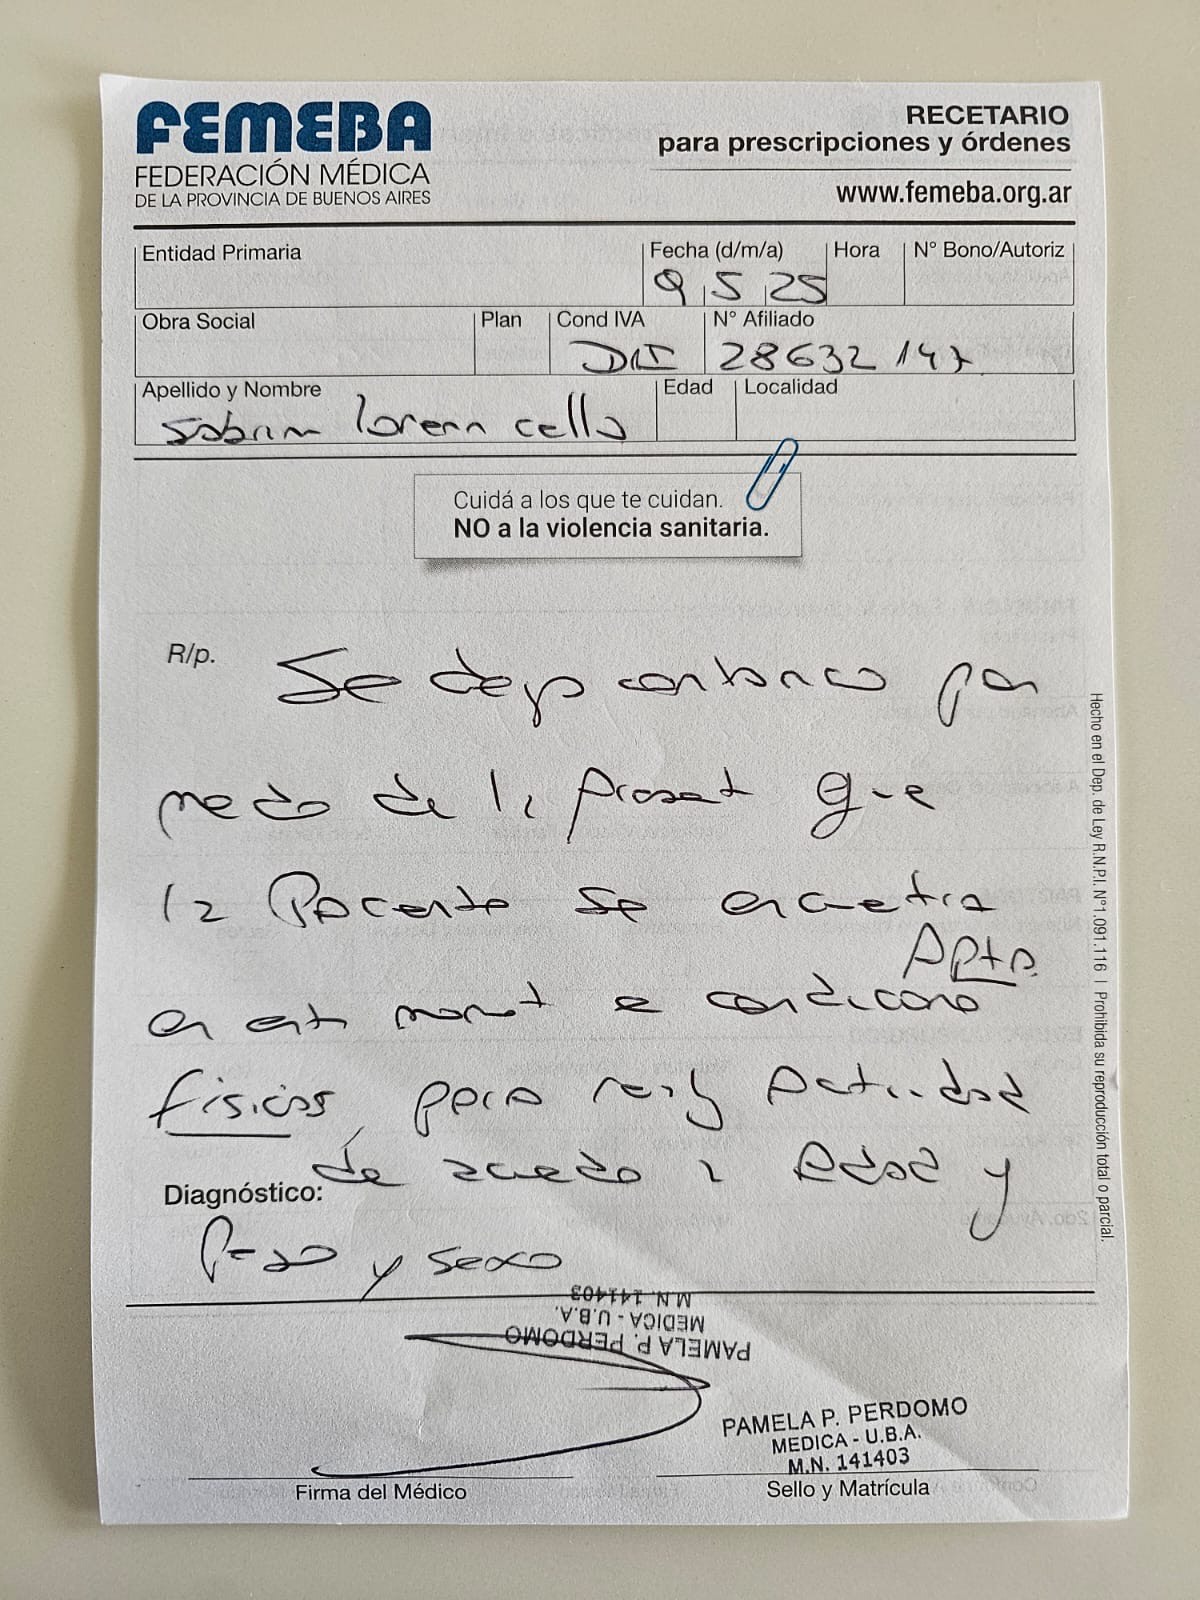 FEMEBA
FEDERACIÓN MÉDICA
DE LA PROVINCIA DE BUENOS AIRES
RECETARIO
para prescripciones y órdenes
www.femeba.org.ar
Entidad Primaria
Fecha (d/m/a)
Hora
N° Bono/Autoriz
9 5 25
Obra Social
Plan
Cond IVA
N° Afiliado
DNI
28632147
Apellido y Nombre
Edad
Localidad
Sabrina Lorena Cella
Cuidá a los que te cuidan.
NO a la violencia sanitaria.
R/p.
Se deja constancia por
medio de la present que
la Paciente se encuentra
Apta
en este moment e condiciones
físicas, para realiz Actividad
de acuerdo a Edad y
Diagnóstico:
Peso y sexo
M.N. 141403
MEDICA - U.B.A.
PAMELA P. PERDOMO
PAMELA P. PERDOMO
MEDICA - U.B.A.
M.N. 141403
Firma del Médico
Sello y Matrícula
Hecho en el Dep. de Ley R.N.P.I. N°1.091.116 | Prohibida su reproducción total o parcial.